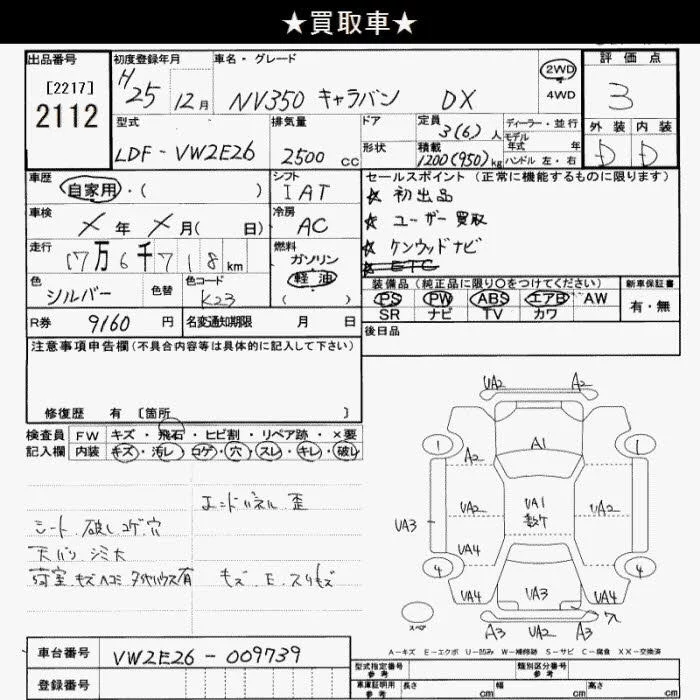 ★買取車★
出品番号
[2217]
2112
初度登録年月
H25 12月
車名・グレード
NV350 キャラバン DX
2WD
4WD
評価点
3
外装 内装
D D
型式
LDF-VW2E26
排気量
2500 cc
ドア
形状
定員
3(6)人
積載
1200(950)kg
ディーラー・並行
モデル
年式 年
ハンドル 左・右
車歴
自家用・( )
シフト
IAT
車検
× 年 × 月( 日)
冷房
AC
走行
17万6千718km
燃料
ガソリン
軽油
( )
色
シルバー
色替
色コード
K23
R券 9160 円
名変通知期限 月 日
セールスポイント(正常に機能するものに限ります)
☆ 初出品
☆ ユーザー買取
☆ ケンウッドナビ
☆ ETC
装備品(純正品に限り○をつけてください)
PS PW ABS エアB AW
SR ナビ TV カワ
新車保証書
有・無
後日品
注意事項申告欄(不具合内容等は具体的に記入して下さい)
修復歴 有 〔箇所 〕
検査員
記入欄
FW キズ・飛石・ヒビ割・リペア跡・×要
内装 キズ・汚レ・コゲ・穴・スレ・キレ・破レ
エンドパネル 歪
シート 破レ コゲ 穴
天バリ シミ大
荷室 キズ ヘコミ タイヤハウス有
キズ、E、スリキズ
UA2 A2
1 A1 1
A2
UA2 UA1 UA2
UA3
UA4
4 4
UA4 UA3 UA4
スペア
A3 UA2 A3
A-キズ E-エクボ U-凹み W-補修跡 S-サビ C-腐食 XX-交換済
車台番号
VW2E26-009739
登録番号
型式指定番号
参考
類別区分番号
参考
車庫証明用
参考
長さ cm 幅 cm 高さ cm